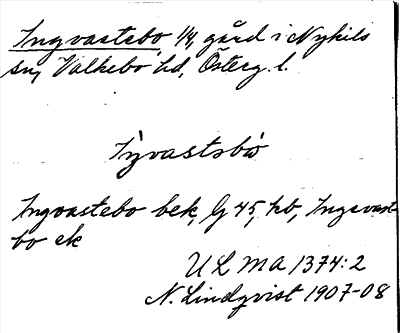 Ingvastebo 1/4, gård i Nykils
sn, Valkebo hd, Österg. l.
Ingvastebo bek, G 45, kb, Ingevast-
bo ek
ULMA 1374:2
N. Lindqvist 1907-08